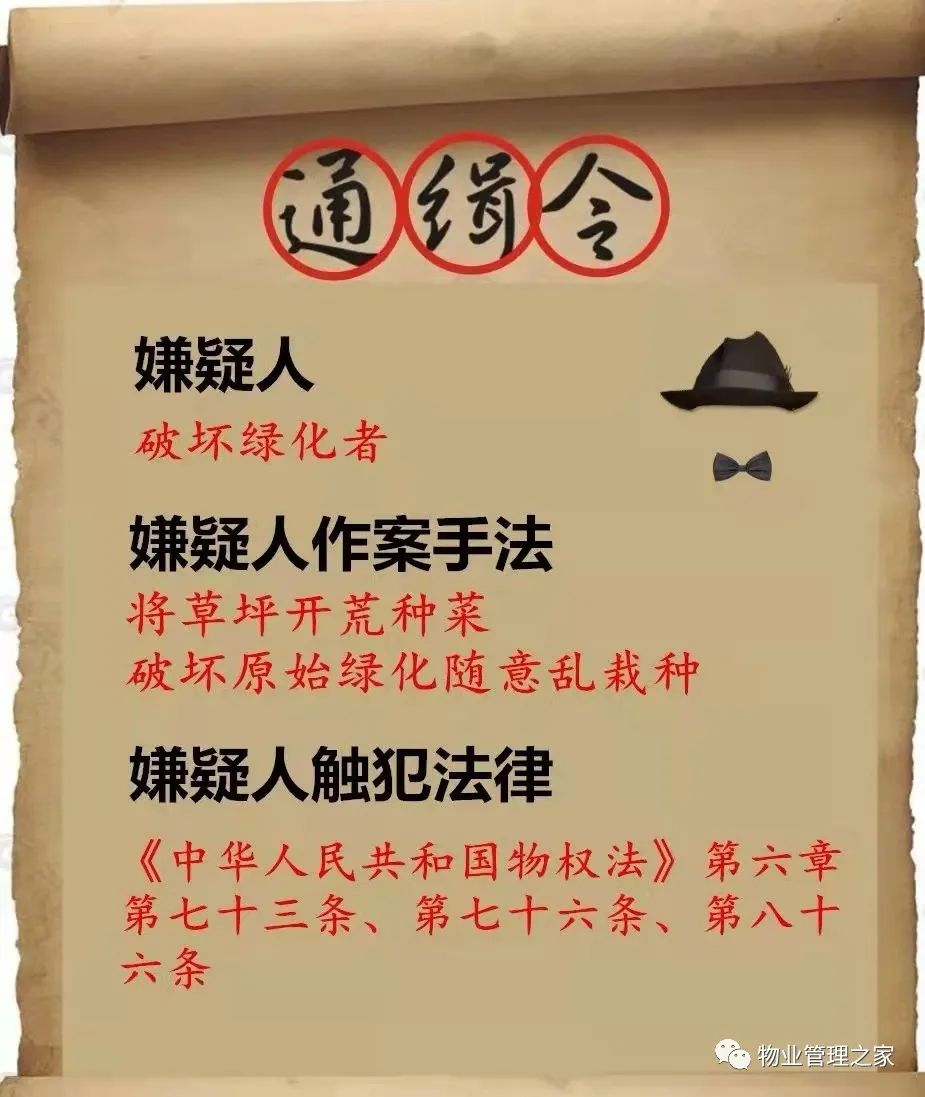 通缉令
嫌疑人
破坏绿化者
嫌疑人作案手法
将草坪开荒种菜
破坏原始绿化随意乱栽种
嫌疑人触犯法律
《中华人民共和国物权法》第六章
第七十三条、第七十六条、第八十
六条
物业管理之家